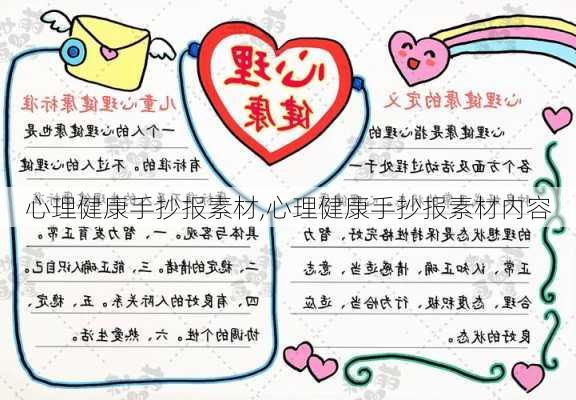 心理
健康
心理健康的定义
心理健康是指心理的
各个方面及活动过程处于一
的理想状态是保持性格完好、智力
正常、认知正确、情感适当、意志
合理、态度积极、行为恰当、适应
良好的状态。
儿童心理健康标准
一个人的心理健康也是
有标准的。不过人的心理健康
心理健康手抄报素材,心理健康手抄报素材内容
具体与客观。一、智力发育正常。
二、稳定的情绪。三、能正确认识自己。
四、有良好的人际关系。五、稳定、
协调的个性。六、热爱生活。